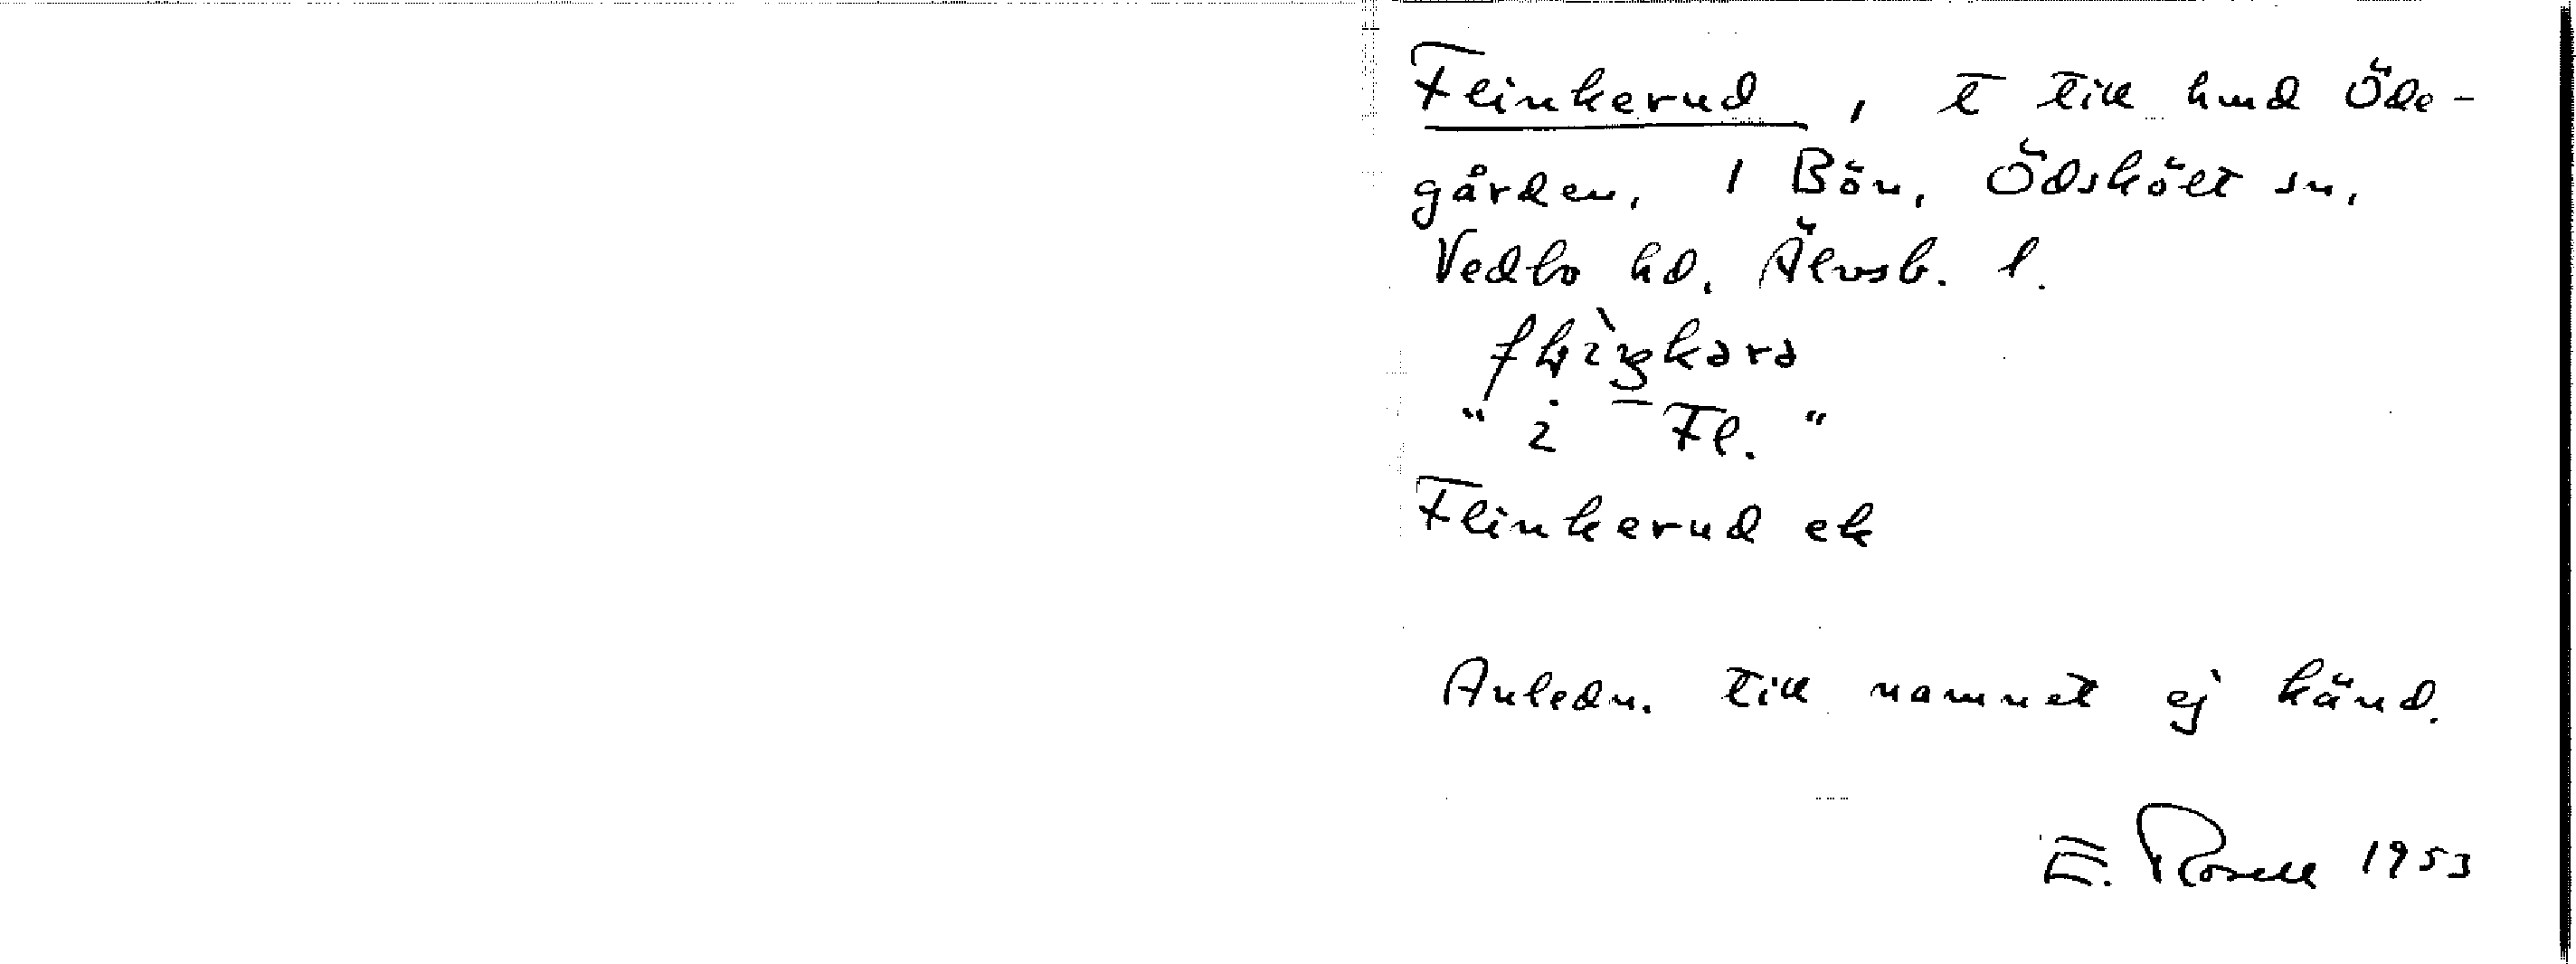 Flinkerud, t till hmd Öde-
gården, 1 Bön, Ödskölt sn,
Vedbo hd, Älvsb. l.
" i Fl. "
Flinkerud ek
Anledn. till namnet ej känd.
E. Rosell 1953